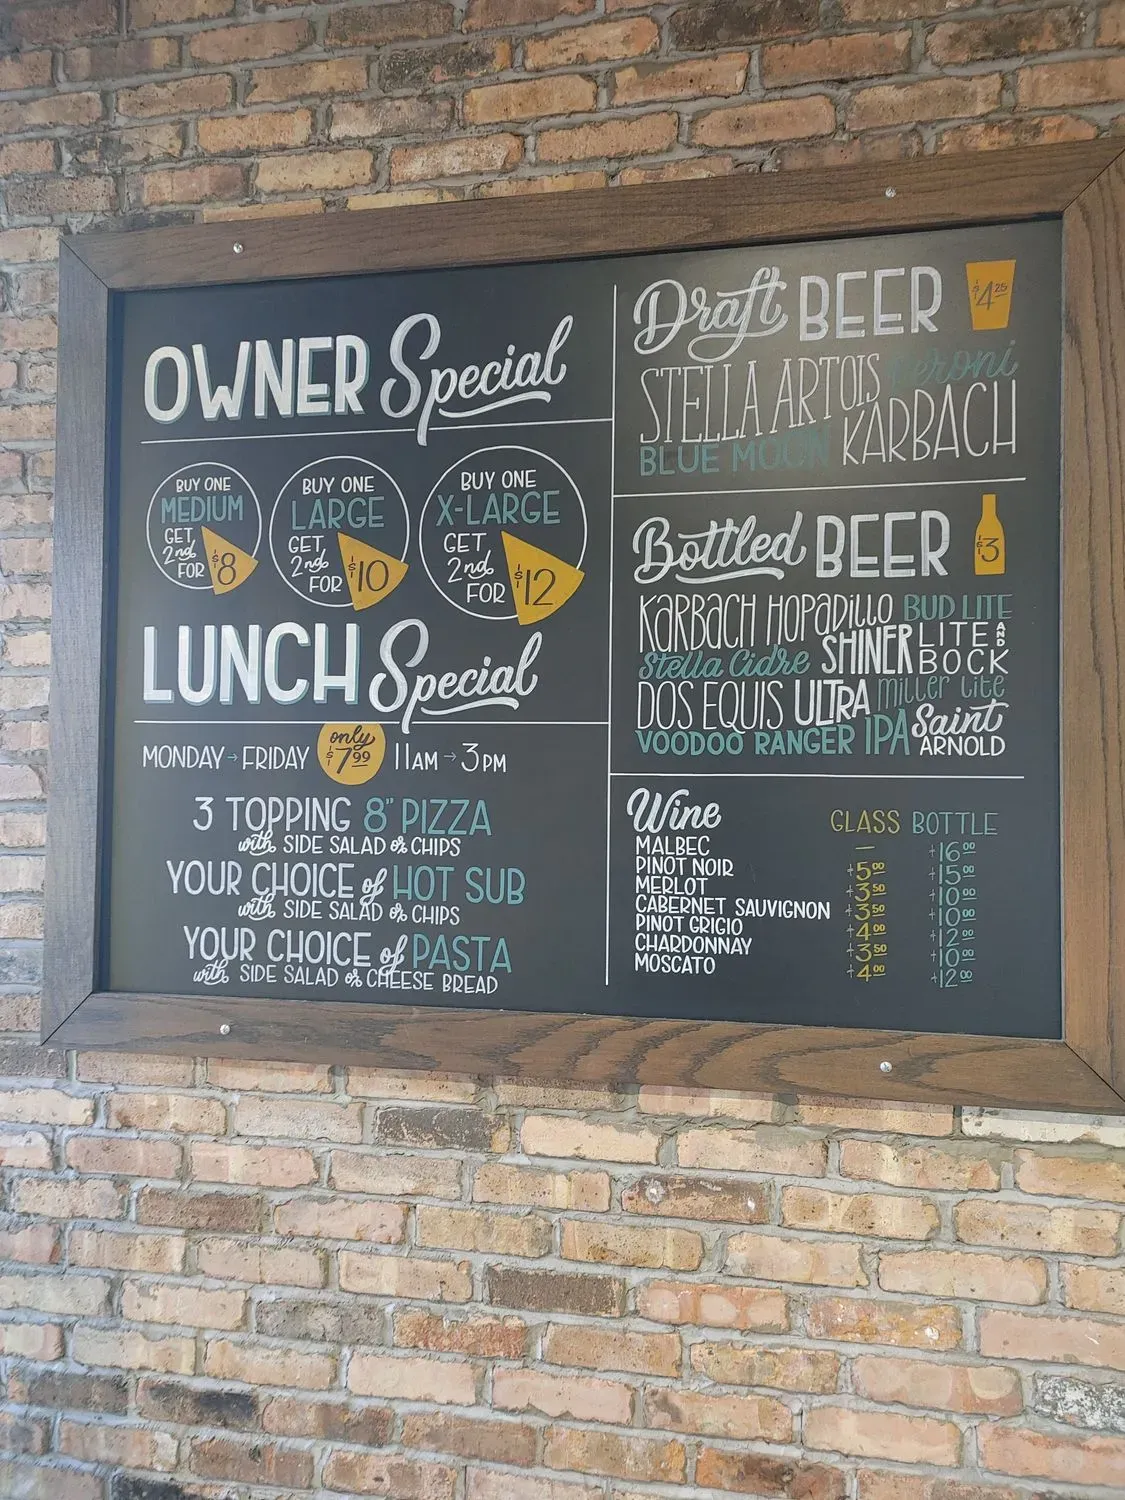 OWNER Special
BUY ONE
MEDIUM
GET
2nd
FOR $8
BUY ONE
LARGE
GET
2nd
FOR $10
BUY ONE
X-LARGE
GET
2nd
FOR $12
LUNCH Special
MONDAY → FRIDAY only $7.99 11AM → 3PM
3 TOPPING 8" PIZZA
with SIDE SALAD or CHIPS
YOUR CHOICE of HOT SUB
with SIDE SALAD or CHIPS
YOUR CHOICE of PASTA
with SIDE SALAD or CHEESE BREAD
Draft BEER $4.25
STELLA ARTOIS Peroni
BLUE MOON KARBACH
Bottled BEER $3
KARBACH HOPADILLO BUD LITE
Stella Cidre SHINER LITE AND BOCK
DOS EQUIS ULTRA Miller Lite
VOODOO RANGER IPA Saint ARNOLD
Wine GLASS BOTTLE
MALBEC — $16.00
PINOT NOIR $5.00 $15.00
MERLOT $3.50 $10.00
CABERNET SAUVIGNON $3.50 $10.00
PINOT GRIGIO $4.00 $12.00
CHARDONNAY $3.50 $10.00
MOSCATO $4.00 $12.00